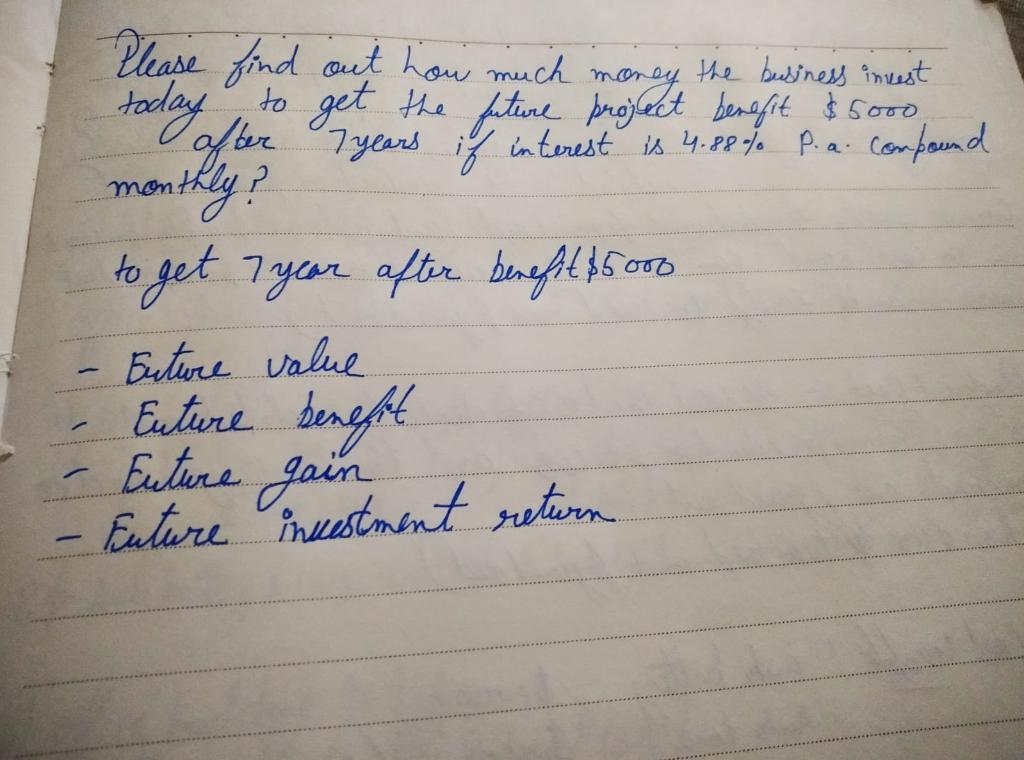 Please find out how much money the business invest
today to get the future project benefit $5000
after 7years if interest is 4.88% P.a. compound
monthly?
to get 7 year after benefit $5000
- Future value
- Future benefit
- Future gain
- Future investment return